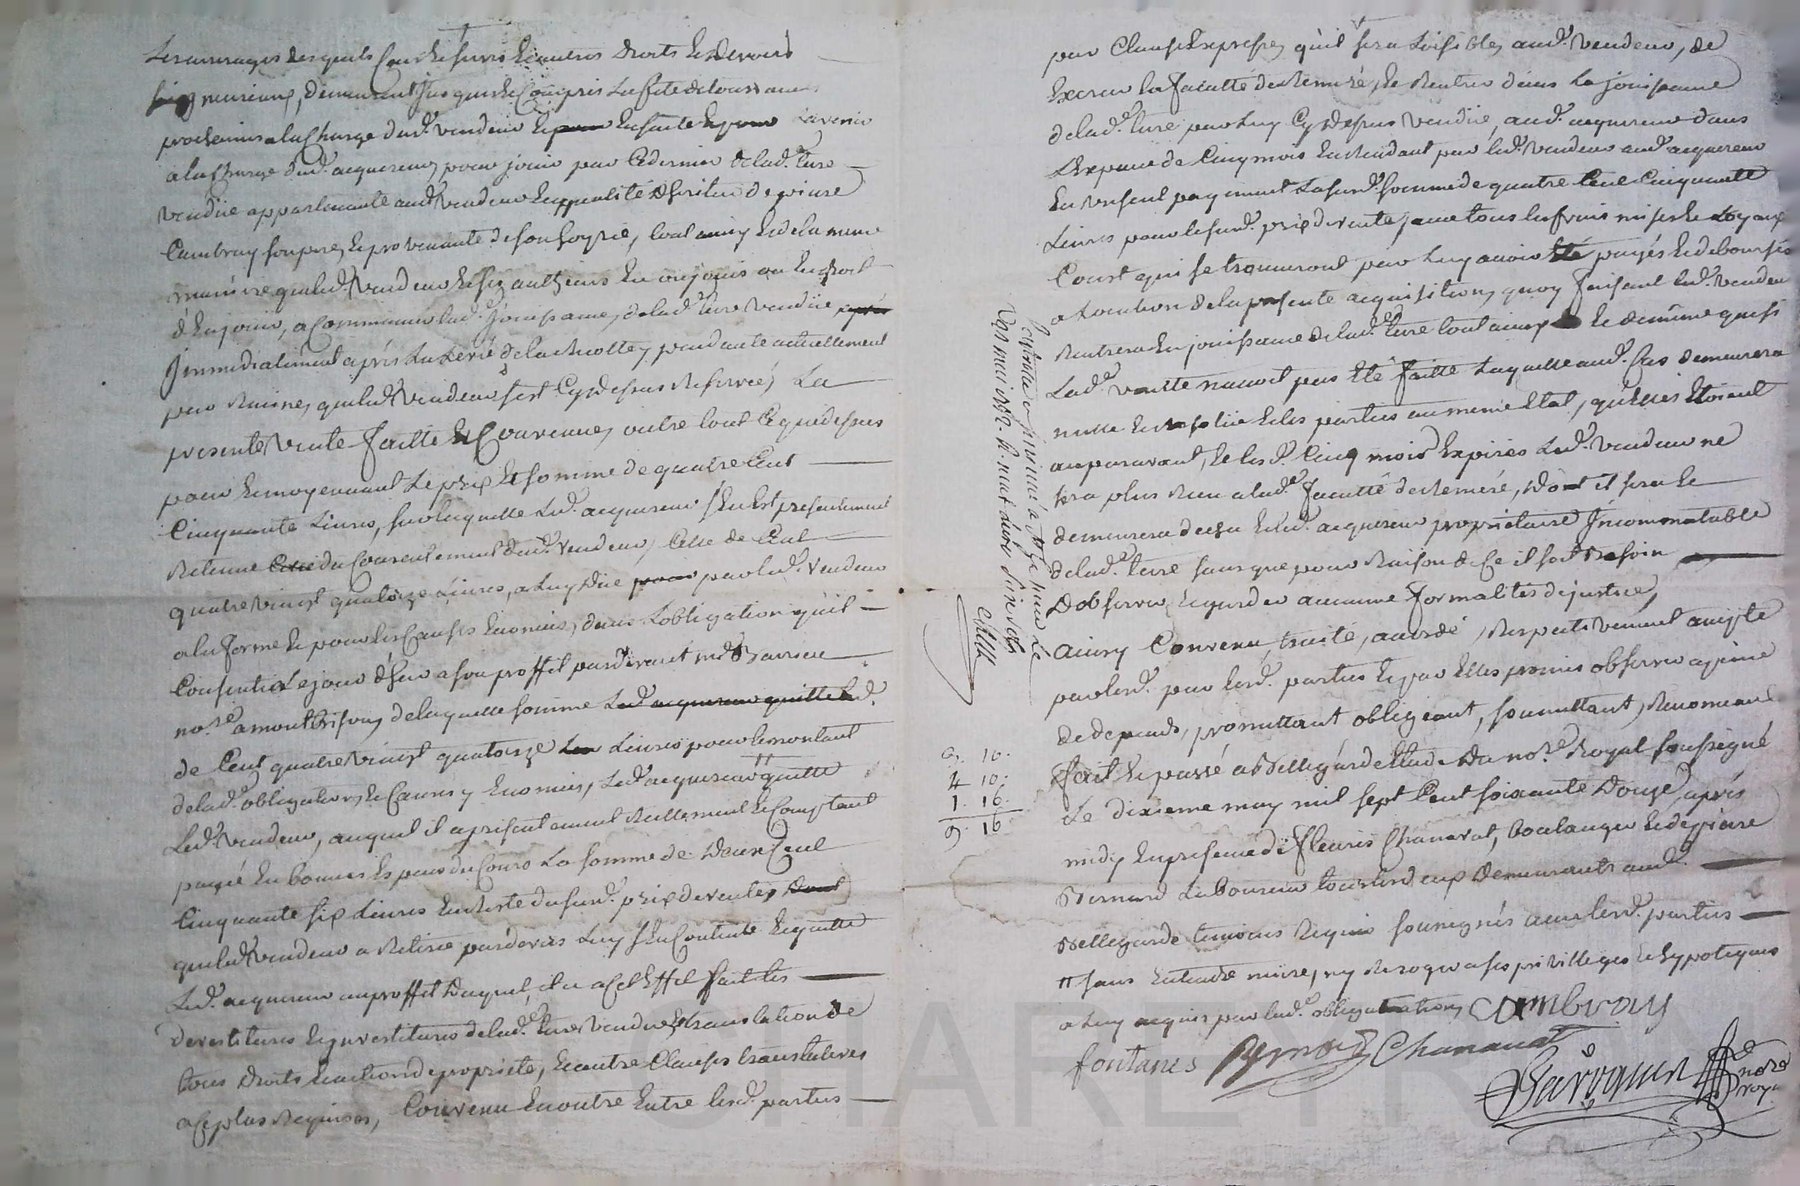 Les arrerages desquels Cens Et servis Et autres Droits Et Devoirs
seigneuriaux, demeurant jusques Et Compris La fete de toussaint
prochaine a la Charge dud. vendeur Et En suitte a Lavenir
a la Charge dud. acquereur, pour jouir par Ce dernier de lad. terre
vendüe appartenante aud. vendeur En qualité d'heritier de pierre
Cambray son pere, Et provenante de son hoyrie, tout ainsy Et de la meme
maniere que led. vendeur Et ses autheurs En ont joüis ou Eu droit
d'En jouir, a Commencer lad. joüissance, de lad. terre vendüe
Immediatement après La Levée de la recolte, pendante actuellement
par Racine, que led. vendeur s'est Cy dessus Reservée, La
presente vente faitte Et Convenue, outre tout Ce que dessus
pour Et moyennant Le prix Et somme de quatre Cent
Cinquante Livres, sur laquelle Led. acquereur s'En Est presentement
Retenue du Consentement dud. vendeur, Celle de Cent
quatre vingt quatorze Livres, a Luy Düe par led. vendeur
a la forme Et pour les Causes Enoncées, dans L'obligation qu'il
Consentie Le jour d'hier a son proffit pardevant me Barrieu
no.re a montbrison, de laquelle somme
de Cent quatre vingt quatorze Livres pour le montant
de lad. obligation, Et Causes y Enoncées, Led. acquereur quitte
Led. vendeur, auquel il a presentement Reellement Et Comptant
payé En bonnes Especes du Cours La somme de Deux Cent
Cinquante six Livres En Reste du susd. prix de vente,
que led. vendeur a Retirée pardevers Luy s'En Contente Et quitte
Led. acquereur au proffit Duquel, il a a Cet Effet fait Les
devestitures Et jnvestitures de lad. terre vendüe Et translation de
tous Droits Et actions de proprieté, Et autre Clauses translatives
a Ce plus Requises, Convenu En outre Entre lesd. parties
par Clause Expresse, qu'il sera Loisible, aud. vendeur, de
Exercer la faculté de Remeré, Et Rentrer dans La joüissance
de lad. terre par Luy Cy dessus vendüe, aud. acquereur dans
L'Espace de Cinq mois En Rendant par led. vendeur aud. acquereur
En un seul payement La susd. somme de quatre Cent Cinquante
Livres pour le susd. prix de vente, avec tous les frais mises Et Loyaux
Cout qui se trouveront par Luy avoir Eté payés Et debourses
a Loccation de la presente acquisition, quoy faisant led. vendeur
Rentrera En joüissance de lad. terre tout ainsy Et de même que si
Lad. vente n'avoit pas Eté faitte Laquelle aud. Cas demeurera
nulle Et Resolüe Et les parties au meme Etat, qu'Elles Etoient
auparavant, Et lesd. Cinq mois Expirés Led. vendeur ne
sera plus Reçu a lad. faculté de Remeré, Dont il sera Et
demeurera decheu Et led. acquereur proprietaire Incommutable
de lad. terre sans que pour Raison de Ce il soit Besoin
D'observer Et garder aucune formalités de justice,
ainsy Convenu, traité, accordé, Respectivement accepté
par lesd. parties Et par Elles promis observer a peine
de depends, promettant obligeant, soumettant, Renonceant
fait Et passé a Bellegarde Etude Du no.re Royal soussigné
Le dixieme may mil sept Cent soixante Douze, après
midy En presence de fleuris Chanavat, boulanger Et de pierre
Bernard Laboureur tous les deux Demeurants aud.
Bellegarde temoins Requis soussignés avec lesd. parties
sans Entendre nuire, ny deroger a ses privilleges Et hypoteques
a Luy acquis par lad. obligation, Cambray
fontanes Bernard Chanavat
Baroquier no.re royal
6. 10.
4 10.
1. 16.
9. 16